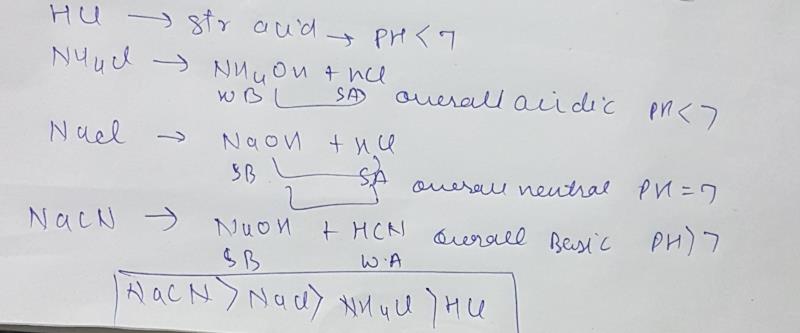 HCl → str acid → PH < 7
NH4Cl → NH4OH + HCl
WB SA overall acidic PH < 7
NaCl → NaOH + HCl
SB SA overall neutral PH = 7
NaCN → NaOH + HCN overall Basic PH > 7
SB W.A
NaCN > NaCl > NH4Cl > HCl